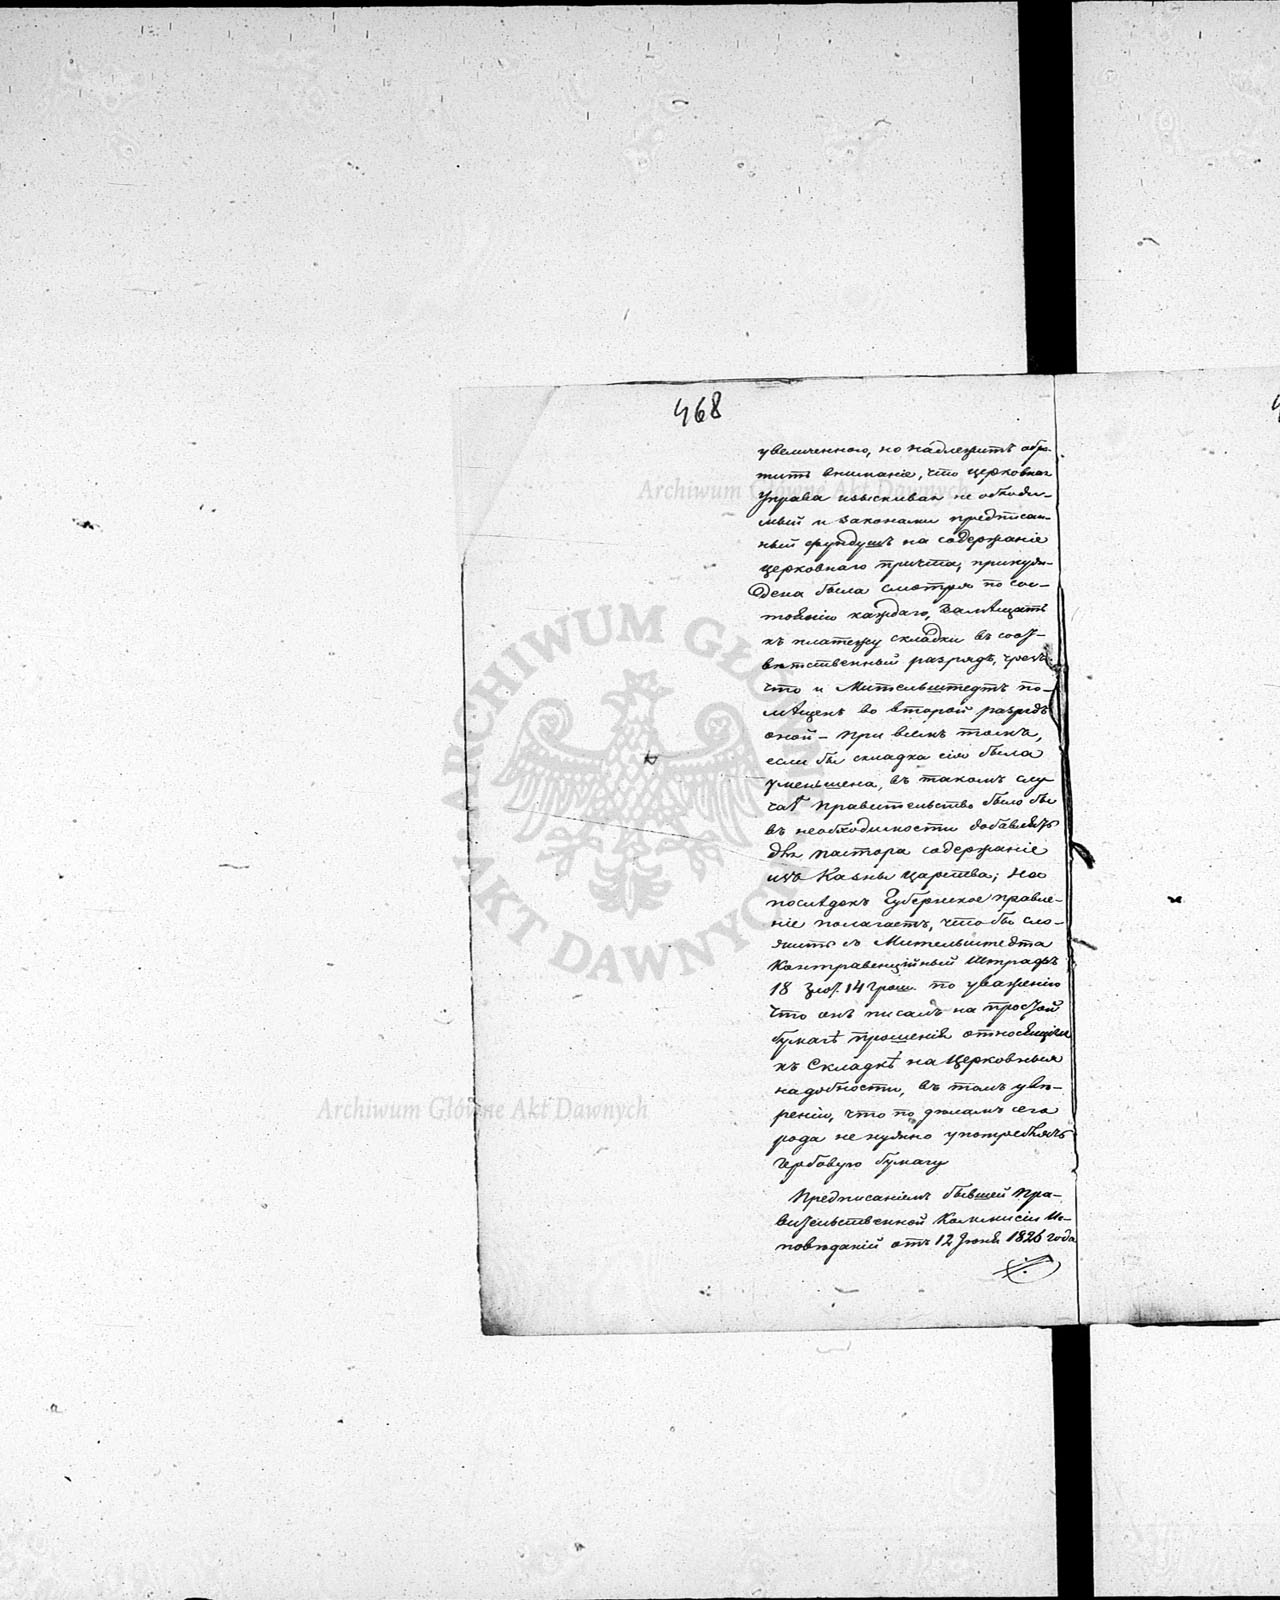 468
увеличенною, но надлежитъ обра-
тить вниманіе, что церковная
Управа изыскивая необходи-
мый и законами предписан-
ный фундушъ на содержаніе
церковнаго причта, принуж-
дена была смотря по сос-
тоянію каждаго, замѣщать
къ платежу складки въ соот-
вѣтственный разрядъ, чрезъ
что и Мительштедтъ по-
мѣщенъ во второй разрядъ
оной – при всемъ томъ,
если бы складка сія была
уменьшена, въ такомъ слу-
чаѣ Правительство было бы
въ необходимости добавлять
для пастора содержаніе
изъ Казны царства; на
послѣдокъ Губернское правле-
ніе полагаетъ, чтобы сло-
жить съ Мительштедта
Контравенційный Штрафъ
18 злот. 14 грош. по уваженію
что онъ писалъ на простой
бумагѣ прошенія относящіяся
къ Складкѣ на Церковныя
надобности, въ томъ увѣ-
реніи, что по дѣламъ сего
рода не нужно употреблять
гербовую бумагу
Предписаніемъ бывшей Пра-
вительственной Коммисіи Ис-
повѣданій отъ 12 Іюня 1826 года
Archiwum Główne Akt Dawnych
ARCHIWUM GŁÓWNE AKT DAWNYCH
Archiwum Główne Akt Dawnych